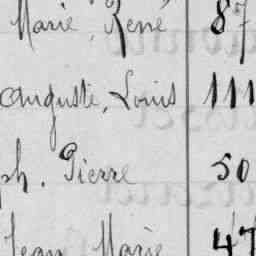 Marie, René 87
Auguste, Louis 111
ph. Pierre 50
Jean Marie 47